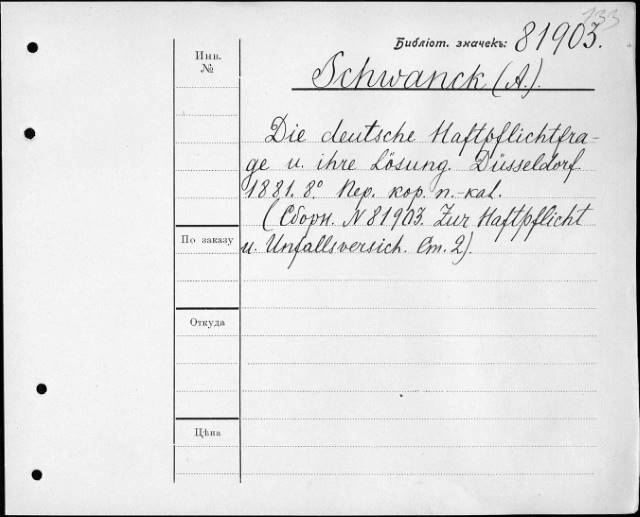 133
Библіот. значекъ: 81903.
Инв.
№
Schwanck (A.).
Die deutsche Haftpflichtfra-
ge u. ihre Lösung. Düsseldorf
1881. 8°. Пер. кор. п.-кал.
(Сборн. N 81903. Zur Haftpflicht
По заказу
u. Unfallsversich. Ст. 2).
Откуда
Цѣна